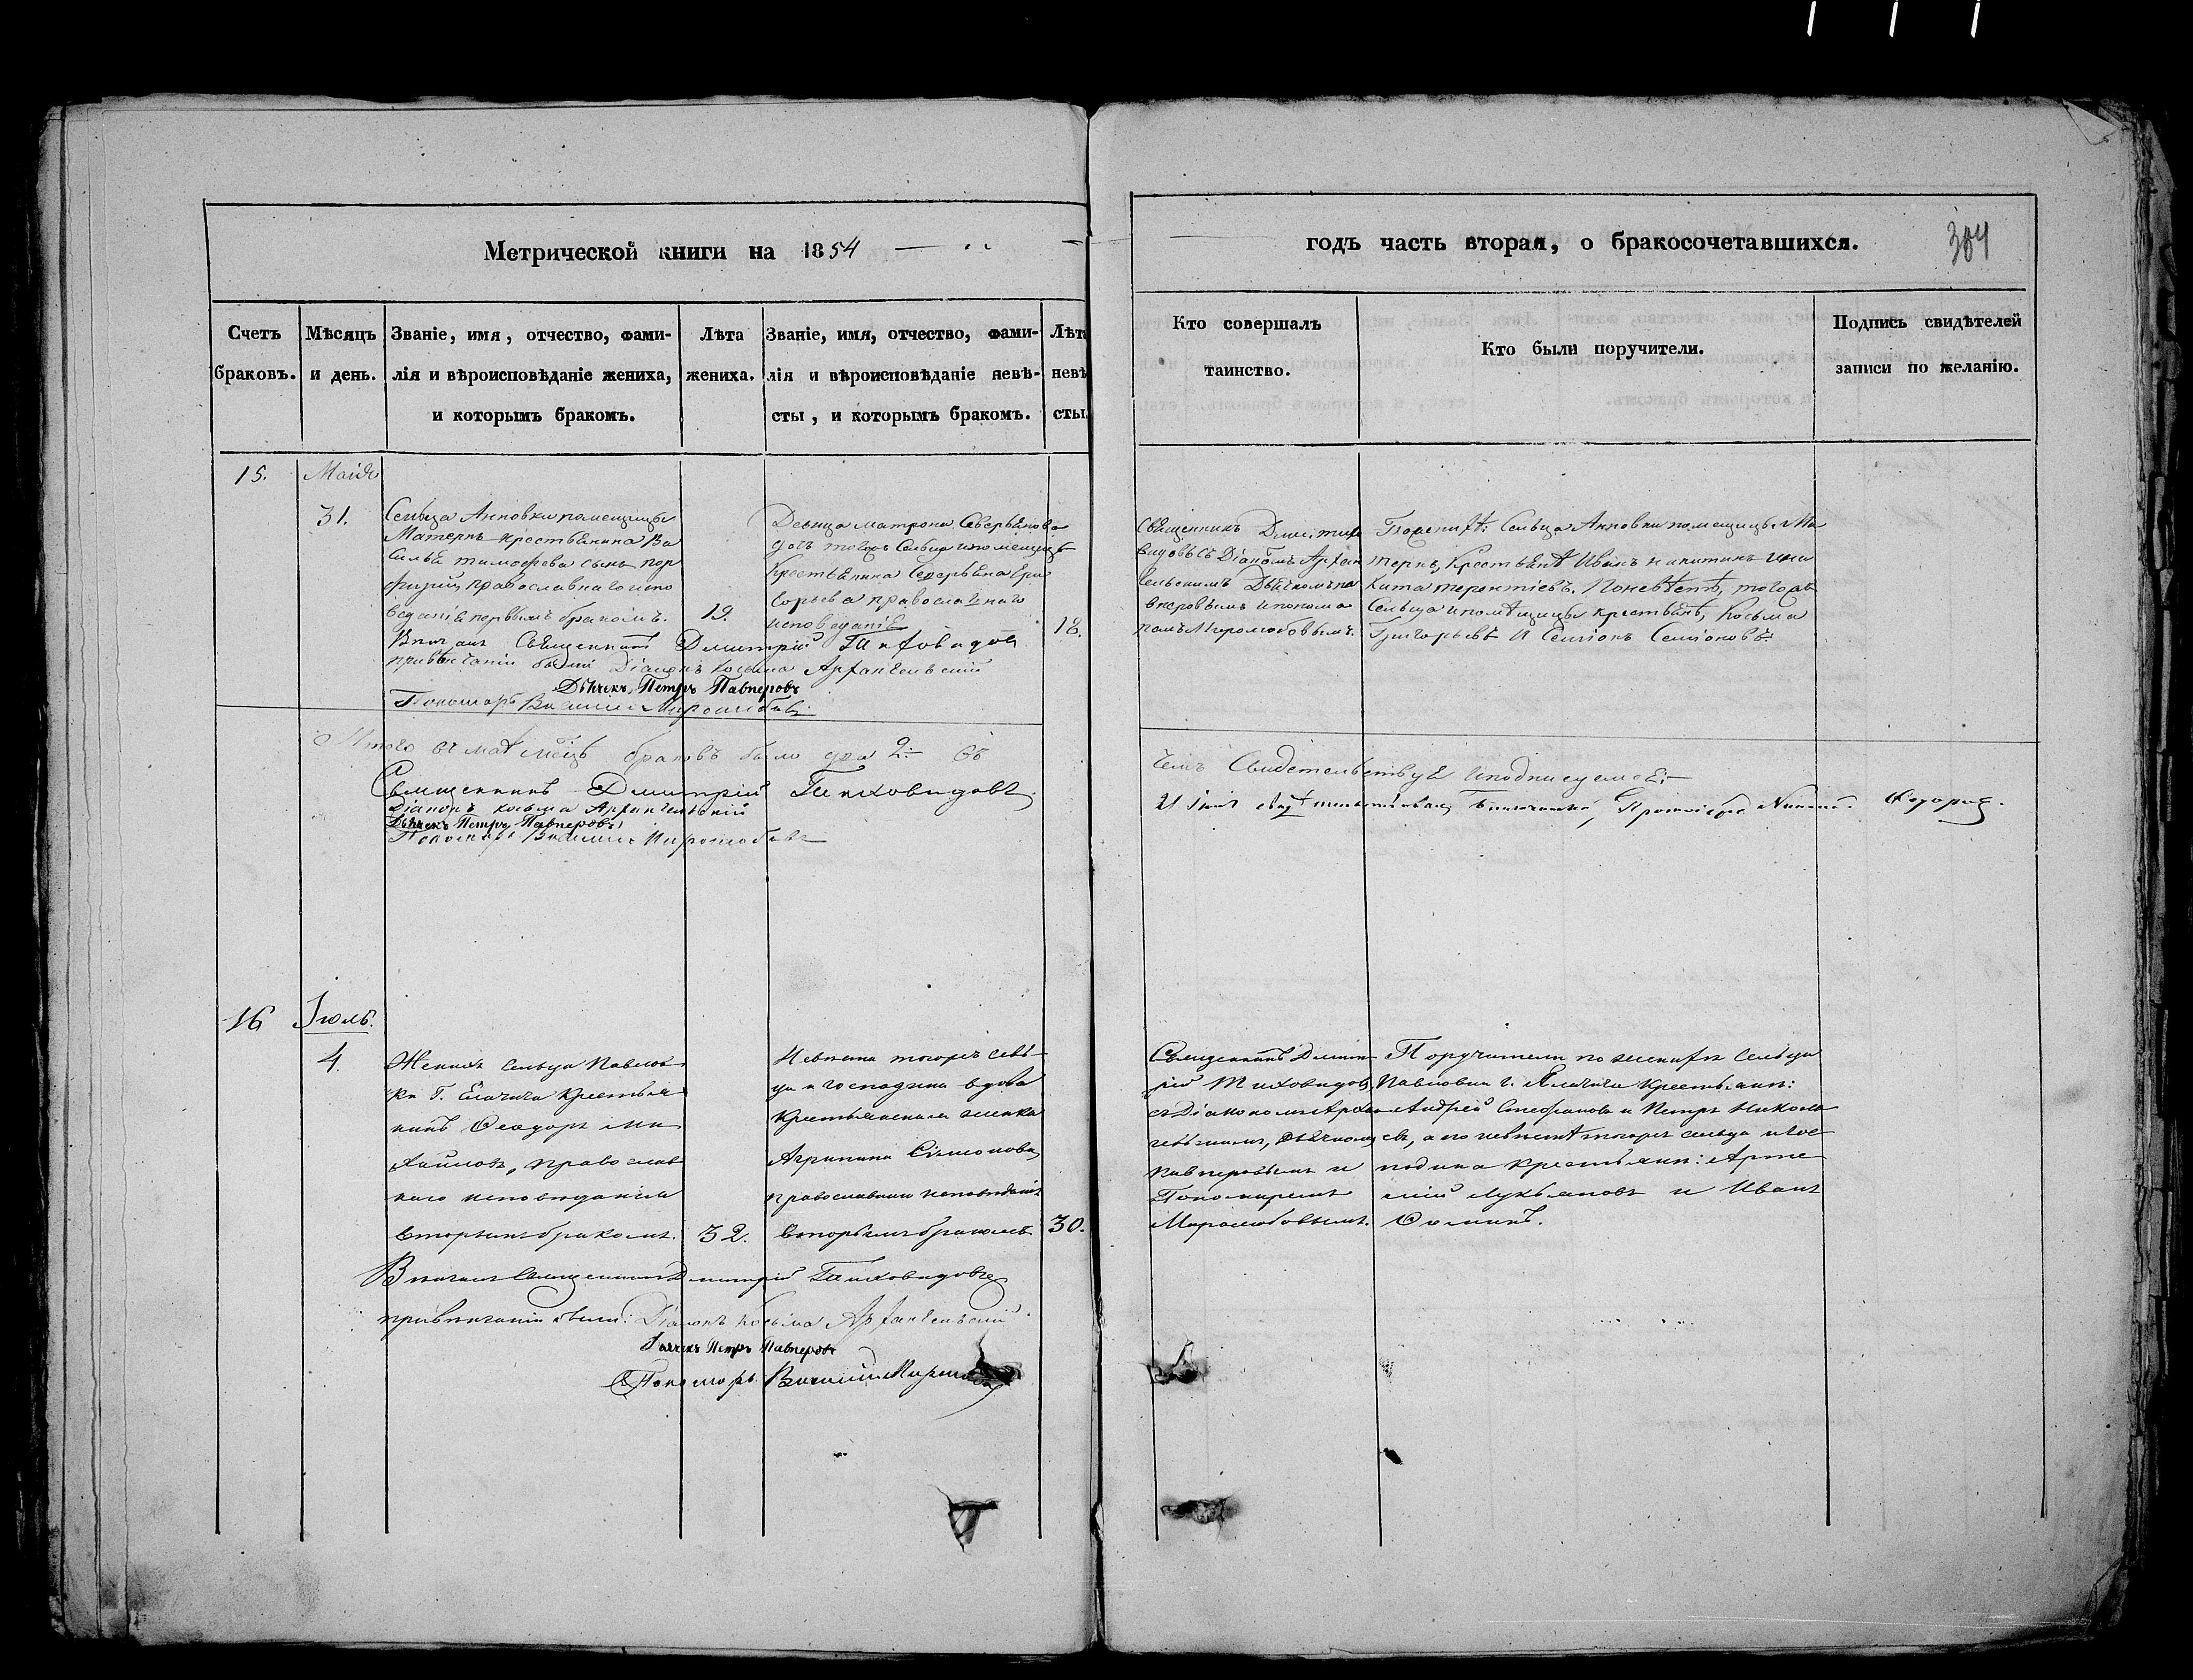 Метрической книги на 1854
годъ часть вторая, о бракосочетавшихся.
384
Счетъ браковъ.
Мѣсяцъ и день.
Званіе, имя, отчество, фами-
лія и вѣроисповѣданіе жениха,
и которымъ бракомъ.
Лѣта
жениха.
Званіе, имя, отчество, фами-
лія и вѣроисповѣданіе невѣ-
сты, и которымъ бракомъ.
Лѣта
невѣ
сты.
Кто совершалъ
таинство.
Кто были поручители.
Подпись свидѣтелей
записи по желанію.
15.
31.
Сельца Анновки помещицы
Матернъ крестьянина Ва
силья тимофеева сынъ пор
фирий православнаго испо
веданіе первымъ бракомъ.
19.
Девица матрона Северьянова
дочь тогоже Сельца и помещицы
Крестьянина Северьяна Гри
горьева православнаго
исповеданіе
18.
Священникъ Димитрий
видовъ съ Діакономъ Архан
гельскимъ Дьячкомъ па
внеровымъ и понома
ремъ Миролюбовымъ.
Сельца Анновки помещицы Ма
тернъ, Крестьянѣ Иванъ никитинъ и ни
кита терентіевъ. По невѣстѣ, тогоже
Сельца и помѣщицы крестьянѣ, Косьма
Григорьевъ И Семіонъ Семіоновъ
Венчалъ Священникъ Димитрий Тиховидовъ
привенчании были Діаконъ Косьма Архангельский
Дьячекъ, Петръ Павнеровъ
Пономарь Василий Миролюбовъ
Итого въ маѣ мѣсцѣ браковъ было два 2. Въ
чемъ Свидетельствуе и подписуемсе:
Священникъ Димитрій Тиховидовъ
Діаконъ косьма Архангельский
Дьячекъ Петръ Павнеровъ
Пономарь Василий Миролюбовъ
16
Іюль.
4.
Женихъ сельца Павлов
ки Г. Елагича крестья
нинъ Феодоръ Ми
хайловъ, православ
наго исповеданія
вторымъ бракомъ.
32.
Невеста тогоже сель
ца и господина вдова
крестьянская женка
Агрипина Симионова,
православнаго исповеданія
вторымъ бракомъ
30.
Священникъ Димит
рій Тиховидовъ
съ Діакономъ Архан
гельскимъ, Дьячкомъ
Павнеровымъ и
Пономаремъ
Миролюбовымъ.
Поручители по женихѣ сельца
Павловки г. Елагича крестьяни:
Андрей Стефановъ и Петръ Никола
евъ, а по невестѣ тогоже сельца и гос
подина крестьяни: Арте
мій Лукьяновъ и Иванъ
Фоминъ.
Венчалъ Священникъ Димитрій Тиховидовъ
привенчании были: Діаконъ Косьма Архангельский
Дьячекъ Петръ Павнеровъ
Пономарь Василий